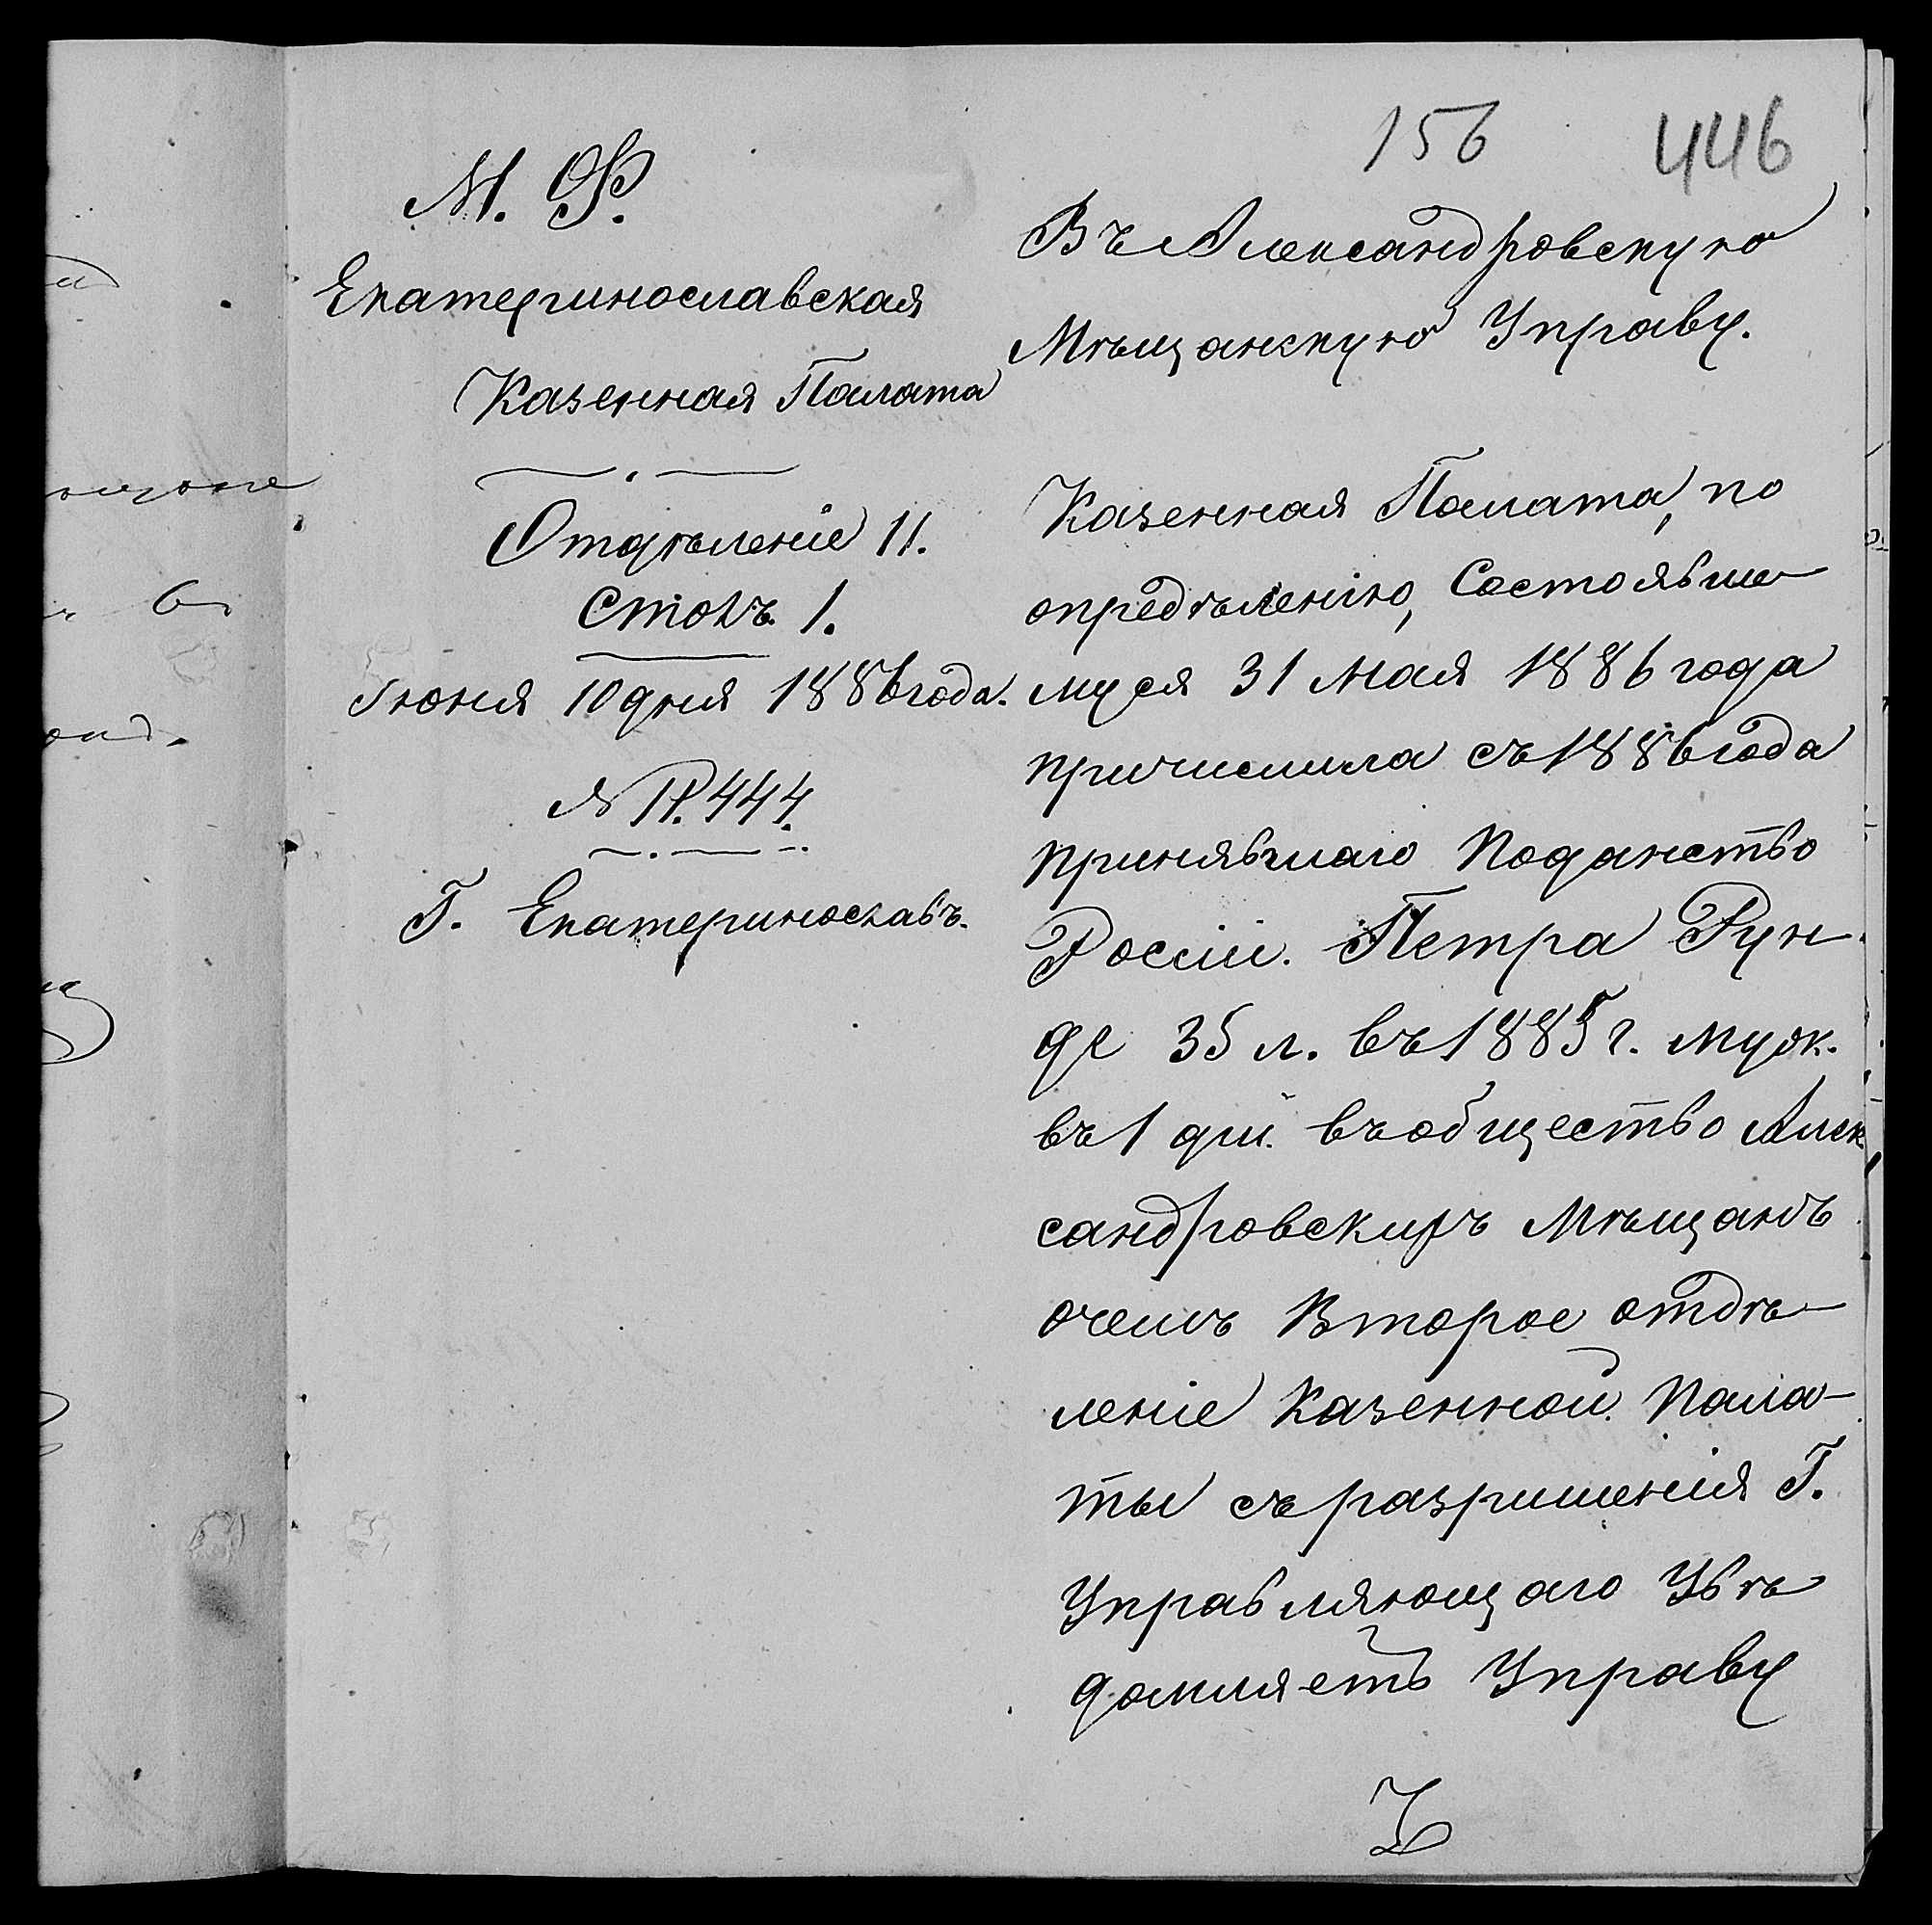 156 446
М. Ф.
Екатеринославская
Казенная Палата
Отдѣленіе 11.
Столъ 1.
Іюня 10 дня 1886 года.
№ 11.444.
Г. Екатеринославъ.
Въ Александровскую
Мѣщанскую Управу.
Казенная Палата, по
опредѣленію, Состоявше
муся 31 Мая 1886 года
причислила съ 1886 года
принявшаго Поданство
Россіи. Петра Рун-
де 35 л. въ 1885 г. муж.
въ 1 дш. въ общество Алек
сандровскихъ Мѣщанъ
очемъ Второе отдѣ-
леніе Казенной Пала-
ты съ разришенія Г.
Управляющаго Увѣ
домляетъ Управу